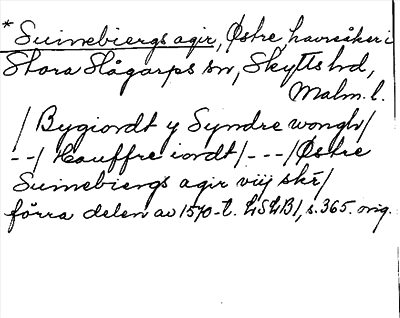 * Suinebiergs agir, Østre, havreåker i
Stora Slågarps sn, Skytts hd,
Malm. l.
/ Bygiordt y Syndre wongh/
--/ Hauffre iordt/---/Østre
Suinebiergs agir viij skr̄/
förra delen av 1570-t. LSLB1, s. 365. orig.